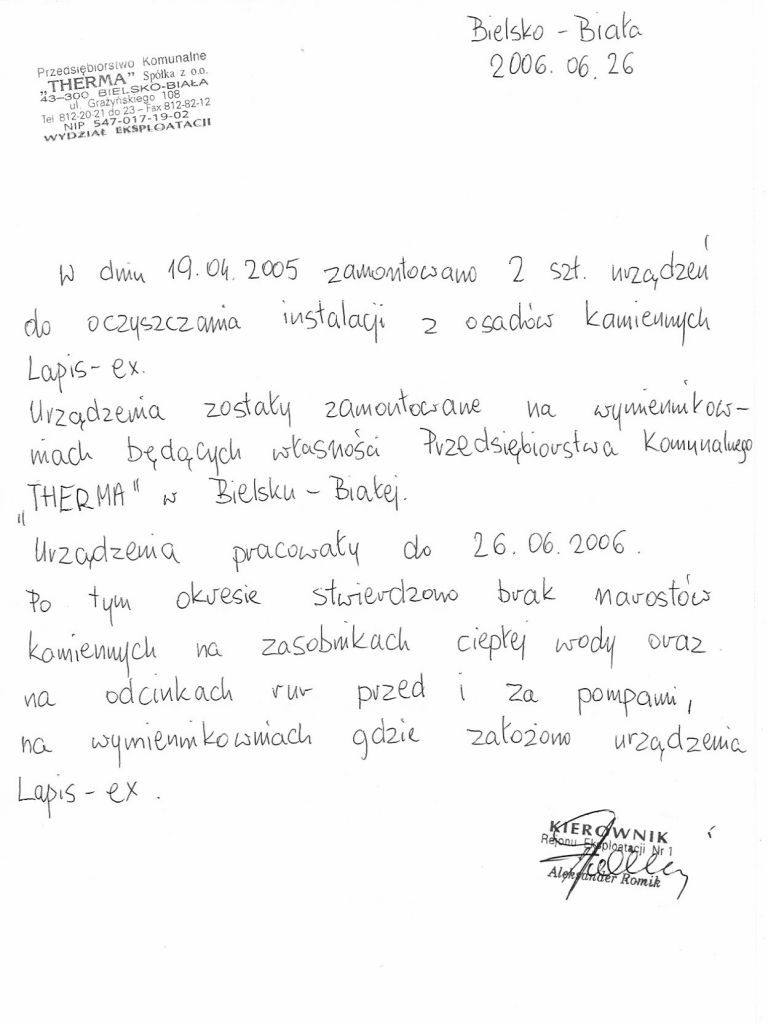 Bielsko - Biała
2006. 06. 26
Przedsiębiorstwo Komunalne
„THERMA” Spółka z o.o.
43-300 BIELSKO-BIAŁA
ul. Grażyńskiego 108
Tel 812-20-21 do 23 - Fax 812-82-12
NIP 547-017-19-02
WYDZIAŁ EKSPLOATACJI
W dniu 19.04.2005 zamontowano 2 szt. urządzeń
do oczyszczania instalacji z osadów kamiennych
Lapis-ex.
Urządzenia zostały zamontowane na wymiennikow-
niach będących własności Przedsiębiorstwa Komunalnego
„THERMA” w Bielsku - Białej.
Urządzenia pracowały do 26.06.2006.
Po tym okresie stwierdzono brak narostów
kamiennych na zasobnikach ciepłej wody oraz
na odcinkach rur przed i za pompami,
na wymiennikowniach gdzie założono urządzenia
Lapis-ex.
KIEROWNIK
Rejonu Eksploatacji Nr 1
Aleksander Romik